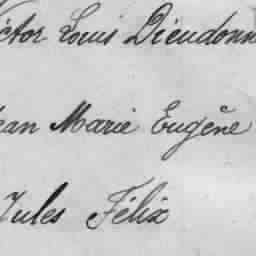 ictor Louis Dieudonn
ean Marie Eugène
Jules Félix